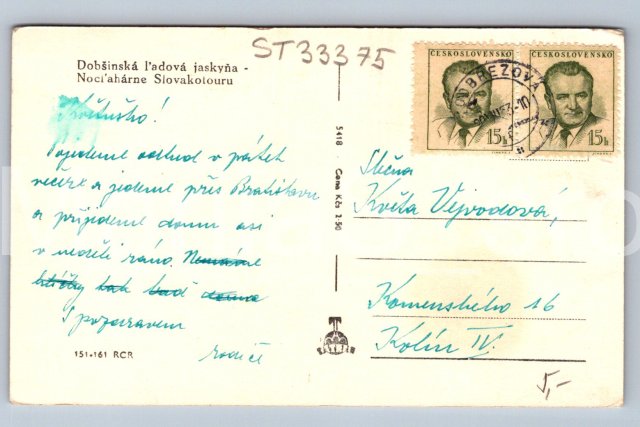 Dobšinská ľadová jaskyňa -
Nocľahárne Slovakotouru
ST33375
ČESKOSLOVENSKO
ČESKOSLOVENSKO
15h
15h
BREZOVÁ
Květuško!
Pojedeme odtud v pátek
večer a jedeme přes Bratislavu
a přijedeme domu asi
v neděli ráno. Nemáme
klíčky tak buď doma
S pozdravem
rodiče
151-161 RCR
5418 Cena Kčs 2·50
Slečna
Květa Vejvodová,
Komenského 16
Kolín IV.
5,-